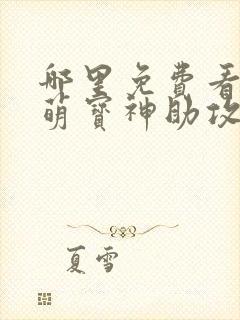 哪里免费看
萌宝神助攻
夏雪